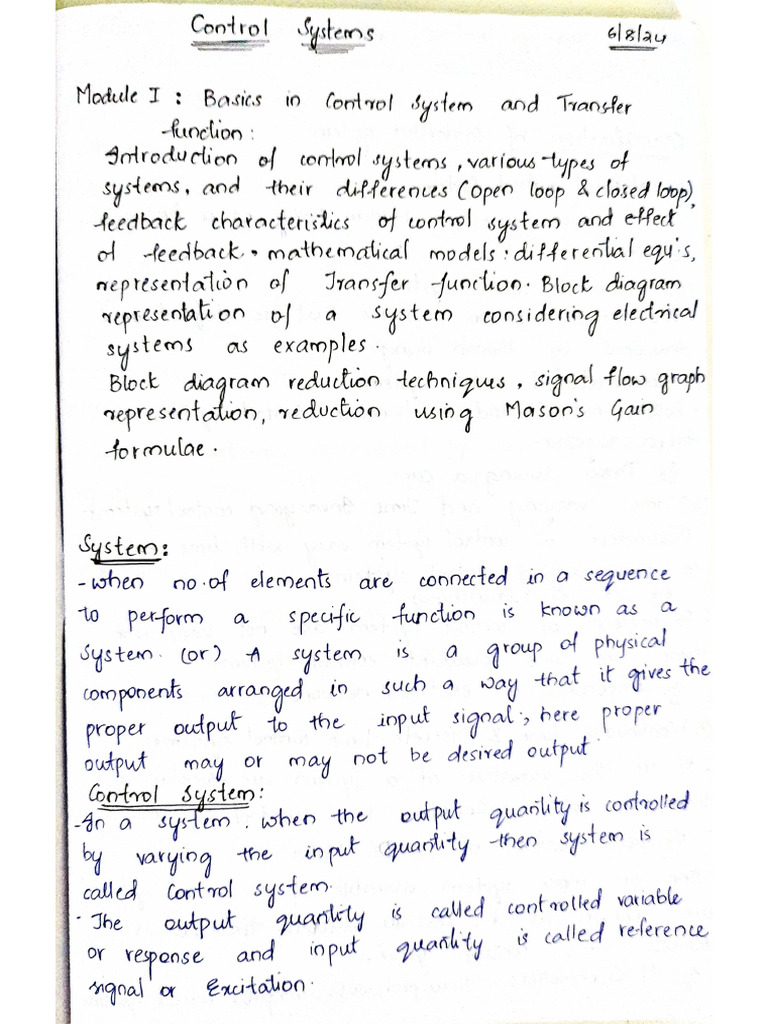 Control Systems 6/8/24
Module I : Basics in Control System and Transfer
function:
Introduction of control systems, various types of
systems, and their differences (open loop & closed loop),
feedback characteristics of control system and effect
of feedback. mathematical models: differential equ's,
representation of Transfer function. Block diagram
representation of a system considering electrical
systems as examples.
Block diagram reduction techniques, signal flow graph
representation, reduction using Mason's Gain
formulae.
System:
- when no. of elements are connected in a sequence
to perform a specific function is known as a
system. (or) A system is a group of physical
components arranged in such a way that it gives the
proper output to the input signal, here proper
output may or may not be desired output
Control System:
- In a system. when the output quantity is controlled
by varying the input quantity then system is
called Control system.
· The output quantity is called controlled variable
or response and input quantity is called reference
signal or Excitation.